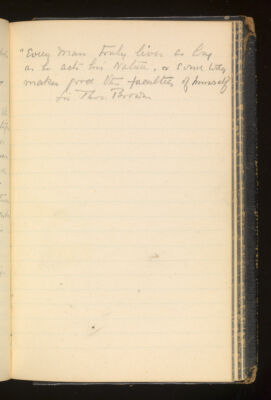 "Every man truly lives so long
as he acts his nature, or some way
makes good the faculties of himself
Sir Thos. Browne